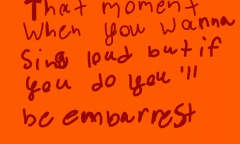 That moment
When you wanna
Sing loud but if
you do you'll
be embarrest